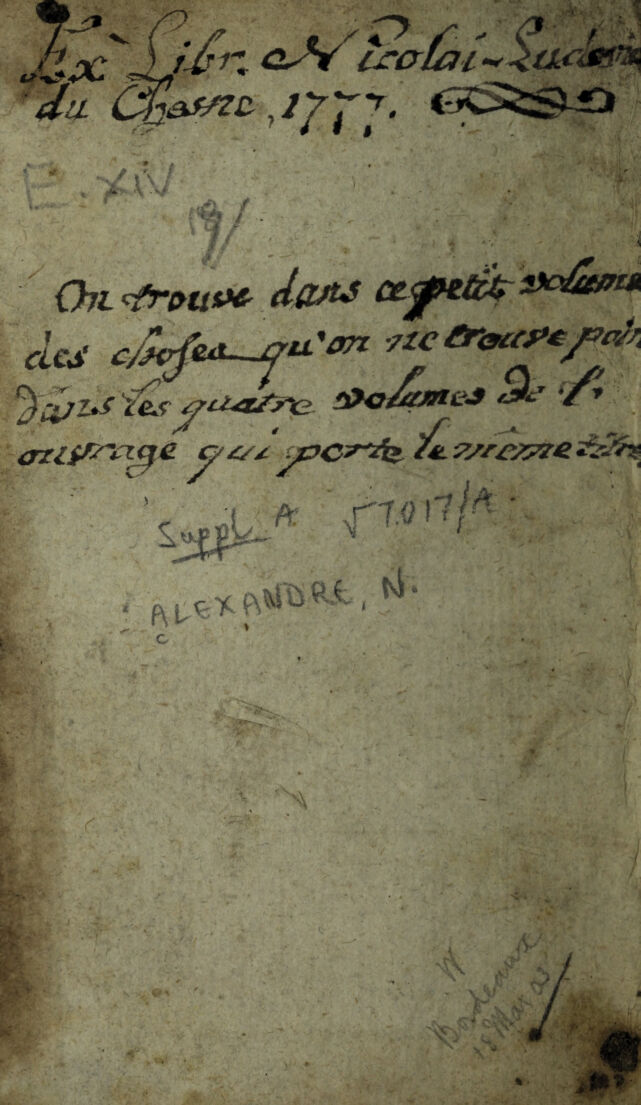 Ex Libr. Nicolai-Ludovici
du Chesne, 1777.
E. XIV
19/
On trouve dans ce petit volume
des choses qu'on ne trouve poin
dans les quatre volumes de l'
ouvrage qui porte le même titre
Suppl A 57017/A
ALEXANDRE, N.
c
W
Bordeaux
18 Mar 03